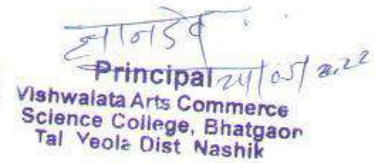 ज्ञानदेव
Principal 24/05/2022
Vishwalata Arts Commerce
Science College, Bhatgaon
Tal Yeola Dist Nashik